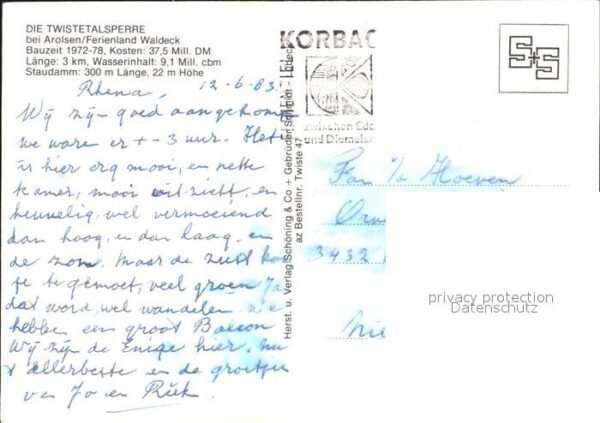 DIE TWISTETALSPERRE
bei Arolsen/Ferienland Waldeck
Bauzeit 1972-78, Kosten: 37,5 Mill. DM
Länge: 3 km, Wasserinhalt: 9,1 Mill. cbm
Staudamm: 300 m Länge, 22 m Höhe
Rhena, 12-6-83
Wij zijn goed aangekomen
we waren er +- 3 uur. Het
is hier erg mooi, en nette
kamer, mooi uitzicht, en
heuvelig, wel vermoeiend
dan hoog, en dan laag, en
de zon. Maar de zust
je te gemoet, veel groen
dat word, wel wandelen
hebben een groot Balcon
Wij zijn de Enige hier.
allerbeste en de groetjes
van Jo en Riek
Herst. u. Verlag Schöning & Co + Gebrüder Schmidt - Lübeck
az Bestellnr. Twiste 47
KORBAC
zwischen Ede
und Diemelse
S+S
Fam v/d Hoeven
3432
Nie
privacy protection
Datenschutz